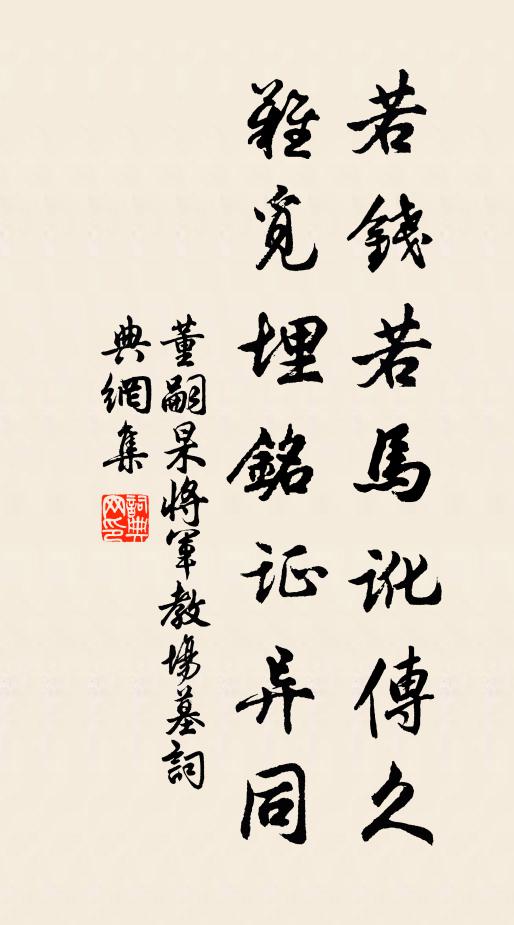 若錢若馬訛傳久
難覓埋銘证异同
董嗣杲將軍教場墓詞
典網集
詞典
网印